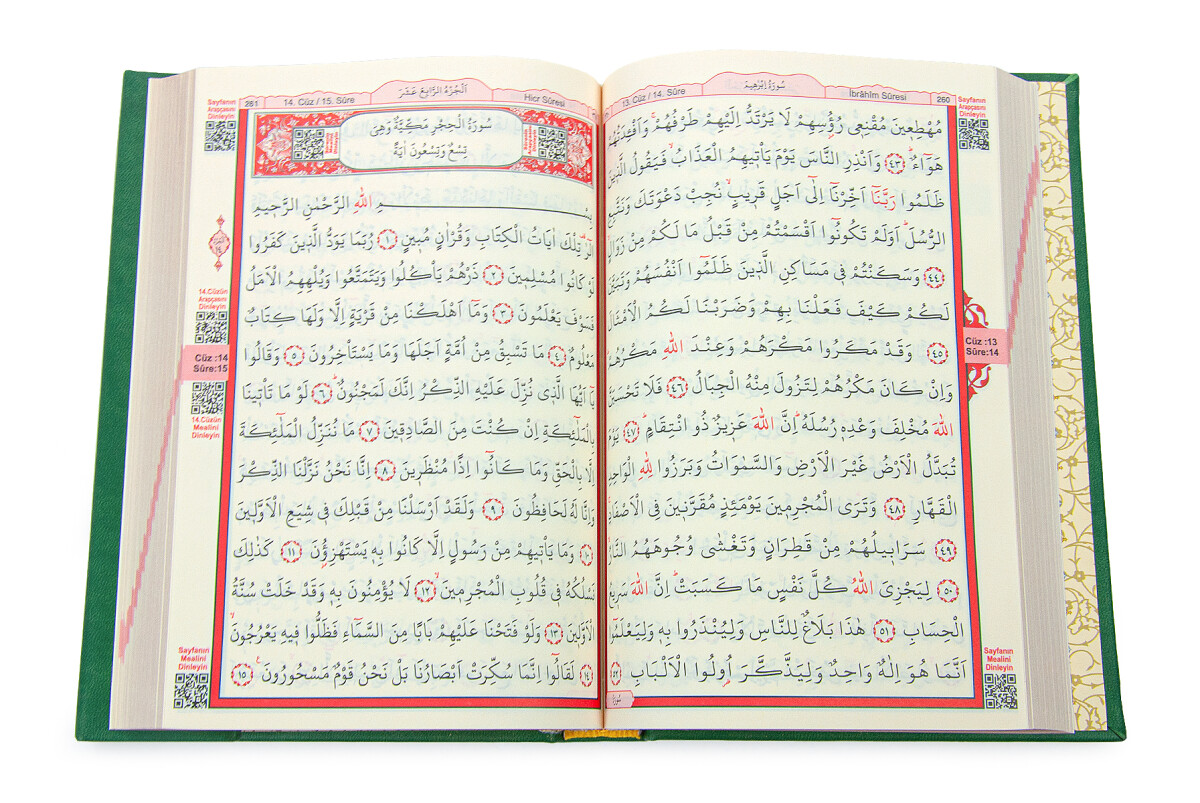 Sayfanın
Arapçasını
Dinleyin
260
İbrâhîm Sûresi
سُورَةُ اِبْرٰهِيمَ
13. Cüz / 14. Sûre
مُهْطِعِينَ مُقْنِعِى رُؤُسِهِمْ لَا يَرْتَدُّ اِلَيْهِمْ طَرْفُهُمْ وَاَفْـِٔدَتُهُمْ
هَوَٓاءٌ ﴿٤٣﴾ وَاَنْذِرِ النَّاسَ يَوْمَ يَأْتِيهِمُ الْعَذَابُ فَيَقُولُ الَّذِينَ
ظَلَمُوا رَبَّنَٓا اَخِّرْنَٓا اِلٰٓى اَجَلٍ قَرِيبٍ نُجِبْ دَعْوَتَكَ وَنَتَّبِعِ
الرُّسُلَ اَوَلَمْ تَكُونُٓوا اَقْسَمْتُمْ مِنْ قَبْلُ مَا لَكُمْ مِنْ زَوَالٍ
﴿٤٤﴾ وَسَكَنْتُمْ فِى مَسَاكِنِ الَّذِينَ ظَلَمُٓوا اَنْفُسَهُمْ وَتَبَيَّنَ
لَكُمْ كَيْفَ فَعَلْنَا بِهِمْ وَضَرَبْنَا لَكُمُ الْاَمْثَالَ
﴿٤٥﴾ وَقَدْ مَكَرُوا مَكْرَهُمْ وَعِنْدَ اللّٰهِ مَكْرُهُمْ
وَاِنْ كَانَ مَكْرُهُمْ لِتَزُولَ مِنْهُ الْجِبَالُ ﴿٤٦﴾ فَلَا تَحْسَبَنَّ
اللّٰهَ مُخْلِفَ وَعْدِهِ رُسُلَهُ اِنَّ اللّٰهَ عَزِيزٌ ذُو انْتِقَامٍ ﴿٤٧﴾ يَوْمَ
تُبَدَّلُ الْاَرْضُ غَيْرَ الْاَرْضِ وَالسَّمٰوَاتُ وَبَرَزُوا لِلّٰهِ الْوَاحِدِ
الْقَهَّارِ ﴿٤٨﴾ وَتَرَى الْمُجْرِمِينَ يَوْمَئِذٍ مُقَرَّنِينَ فِى الْاَصْفَادِ
﴿٤٩﴾ سَرَابِيلُهُمْ مِنْ قَطِرَانٍ وَتَغْشٰى وُجُوهَهُمُ النَّارُ
﴿٥٠﴾ لِيَجْزِىَ اللّٰهُ كُلَّ نَفْسٍ مَا كَسَبَتْ اِنَّ اللّٰهَ سَرِيعُ
الْحِسَابِ ﴿٥١﴾ هٰذَا بَلَاغٌ لِلنَّاسِ وَلِيُنْذَرُوا بِهِ وَلِيَعْلَمُٓوا
اَنَّمَا هُوَ اِلٰهٌ وَاحِدٌ وَلِيَذَّكَّرَ اُولُوا الْاَلْبَابِ ﴿٥٢﴾
Cüz :13
Sûre:14
Sayfanın
Mealini
Dinleyin
Sayfanın
Arapçasını
Dinleyin
Hicr Sûresi
اَلْجُزْءُ الرَّابِعَ عَشَرَ
14. Cüz / 15. Sûre
261
سُورَةُ الْحِجْرِ مَكِّيَّةٌ وَهِىَ
تِسْعٌ وَتِسْعُونَ اٰيَةً
بِسْمِ اللّٰهِ الرَّحْمٰنِ الرَّحِيمِ
الٓرٰ تِلْكَ اٰيَاتُ الْكِتَابِ وَقُرْاٰنٍ مُبِينٍ ﴿١﴾ رُبَمَا يَوَدُّ الَّذِينَ كَفَرُوا
لَوْ كَانُوا مُسْلِمِينَ ﴿٢﴾ ذَرْهُمْ يَأْكُلُوا وَيَتَمَتَّعُوا وَيُلْهِهِمُ الْاَمَلُ
فَسَوْفَ يَعْلَمُونَ ﴿٣﴾ وَمَٓا اَهْلَكْنَا مِنْ قَرْيَةٍ اِلَّا وَلَهَا كِتَابٌ
مَعْلُومٌ ﴿٤﴾ مَا تَسْبِقُ مِنْ اُمَّةٍ اَجَلَهَا وَمَا يَسْتَأْخِرُونَ ﴿٥﴾ وَقَالُوا
يَٓا اَيُّهَا الَّذِى نُزِّلَ عَلَيْهِ الذِّكْرُ اِنَّكَ لَمَجْنُونٌ ﴿٦﴾ لَوْ مَا تَأْتِينَا
بِالْمَلٰٓئِكَةِ اِنْ كُنْتَ مِنَ الصَّادِقِينَ ﴿٧﴾ مَا نُنَزِّلُ الْمَلٰٓئِكَةَ
اِلَّا بِالْحَقِّ وَمَا كَانُٓوا اِذًا مُنْظَرِينَ ﴿٨﴾ اِنَّا نَحْنُ نَزَّلْنَا الذِّكْرَ
وَاِنَّا لَهُ لَحَافِظُونَ ﴿٩﴾ وَلَقَدْ اَرْسَلْنَا مِنْ قَبْلِكَ فِى شِيَعِ الْاَوَّلِينَ
﴿١٠﴾ وَمَا يَأْتِيهِمْ مِنْ رَسُولٍ اِلَّا كَانُوا بِهِ يَسْتَهْزِؤُنَ ﴿١١﴾ كَذٰلِكَ
نَسْلُكُهُ فِى قُلُوبِ الْمُجْرِمِينَ ﴿١٢﴾ لَا يُؤْمِنُونَ بِهِ وَقَدْ خَلَتْ سُنَّةُ
الْاَوَّلِينَ ﴿١٣﴾ وَلَوْ فَتَحْنَا عَلَيْهِمْ بَابًا مِنَ السَّمَٓاءِ فَظَلُّوا فِيهِ يَعْرُجُونَ
﴿١٤﴾ لَقَالُٓوا اِنَّمَا سُكِّرَتْ اَبْصَارُنَا بَلْ نَحْنُ قَوْمٌ مَسْحُورُونَ ﴿١٥﴾
14.Cüzün
Arapçasını
Dinleyin
Cüz :14
Sûre:15
14.Cüzün
Mealini
Dinleyin
Sayfanın
Mealini
Dinleyin